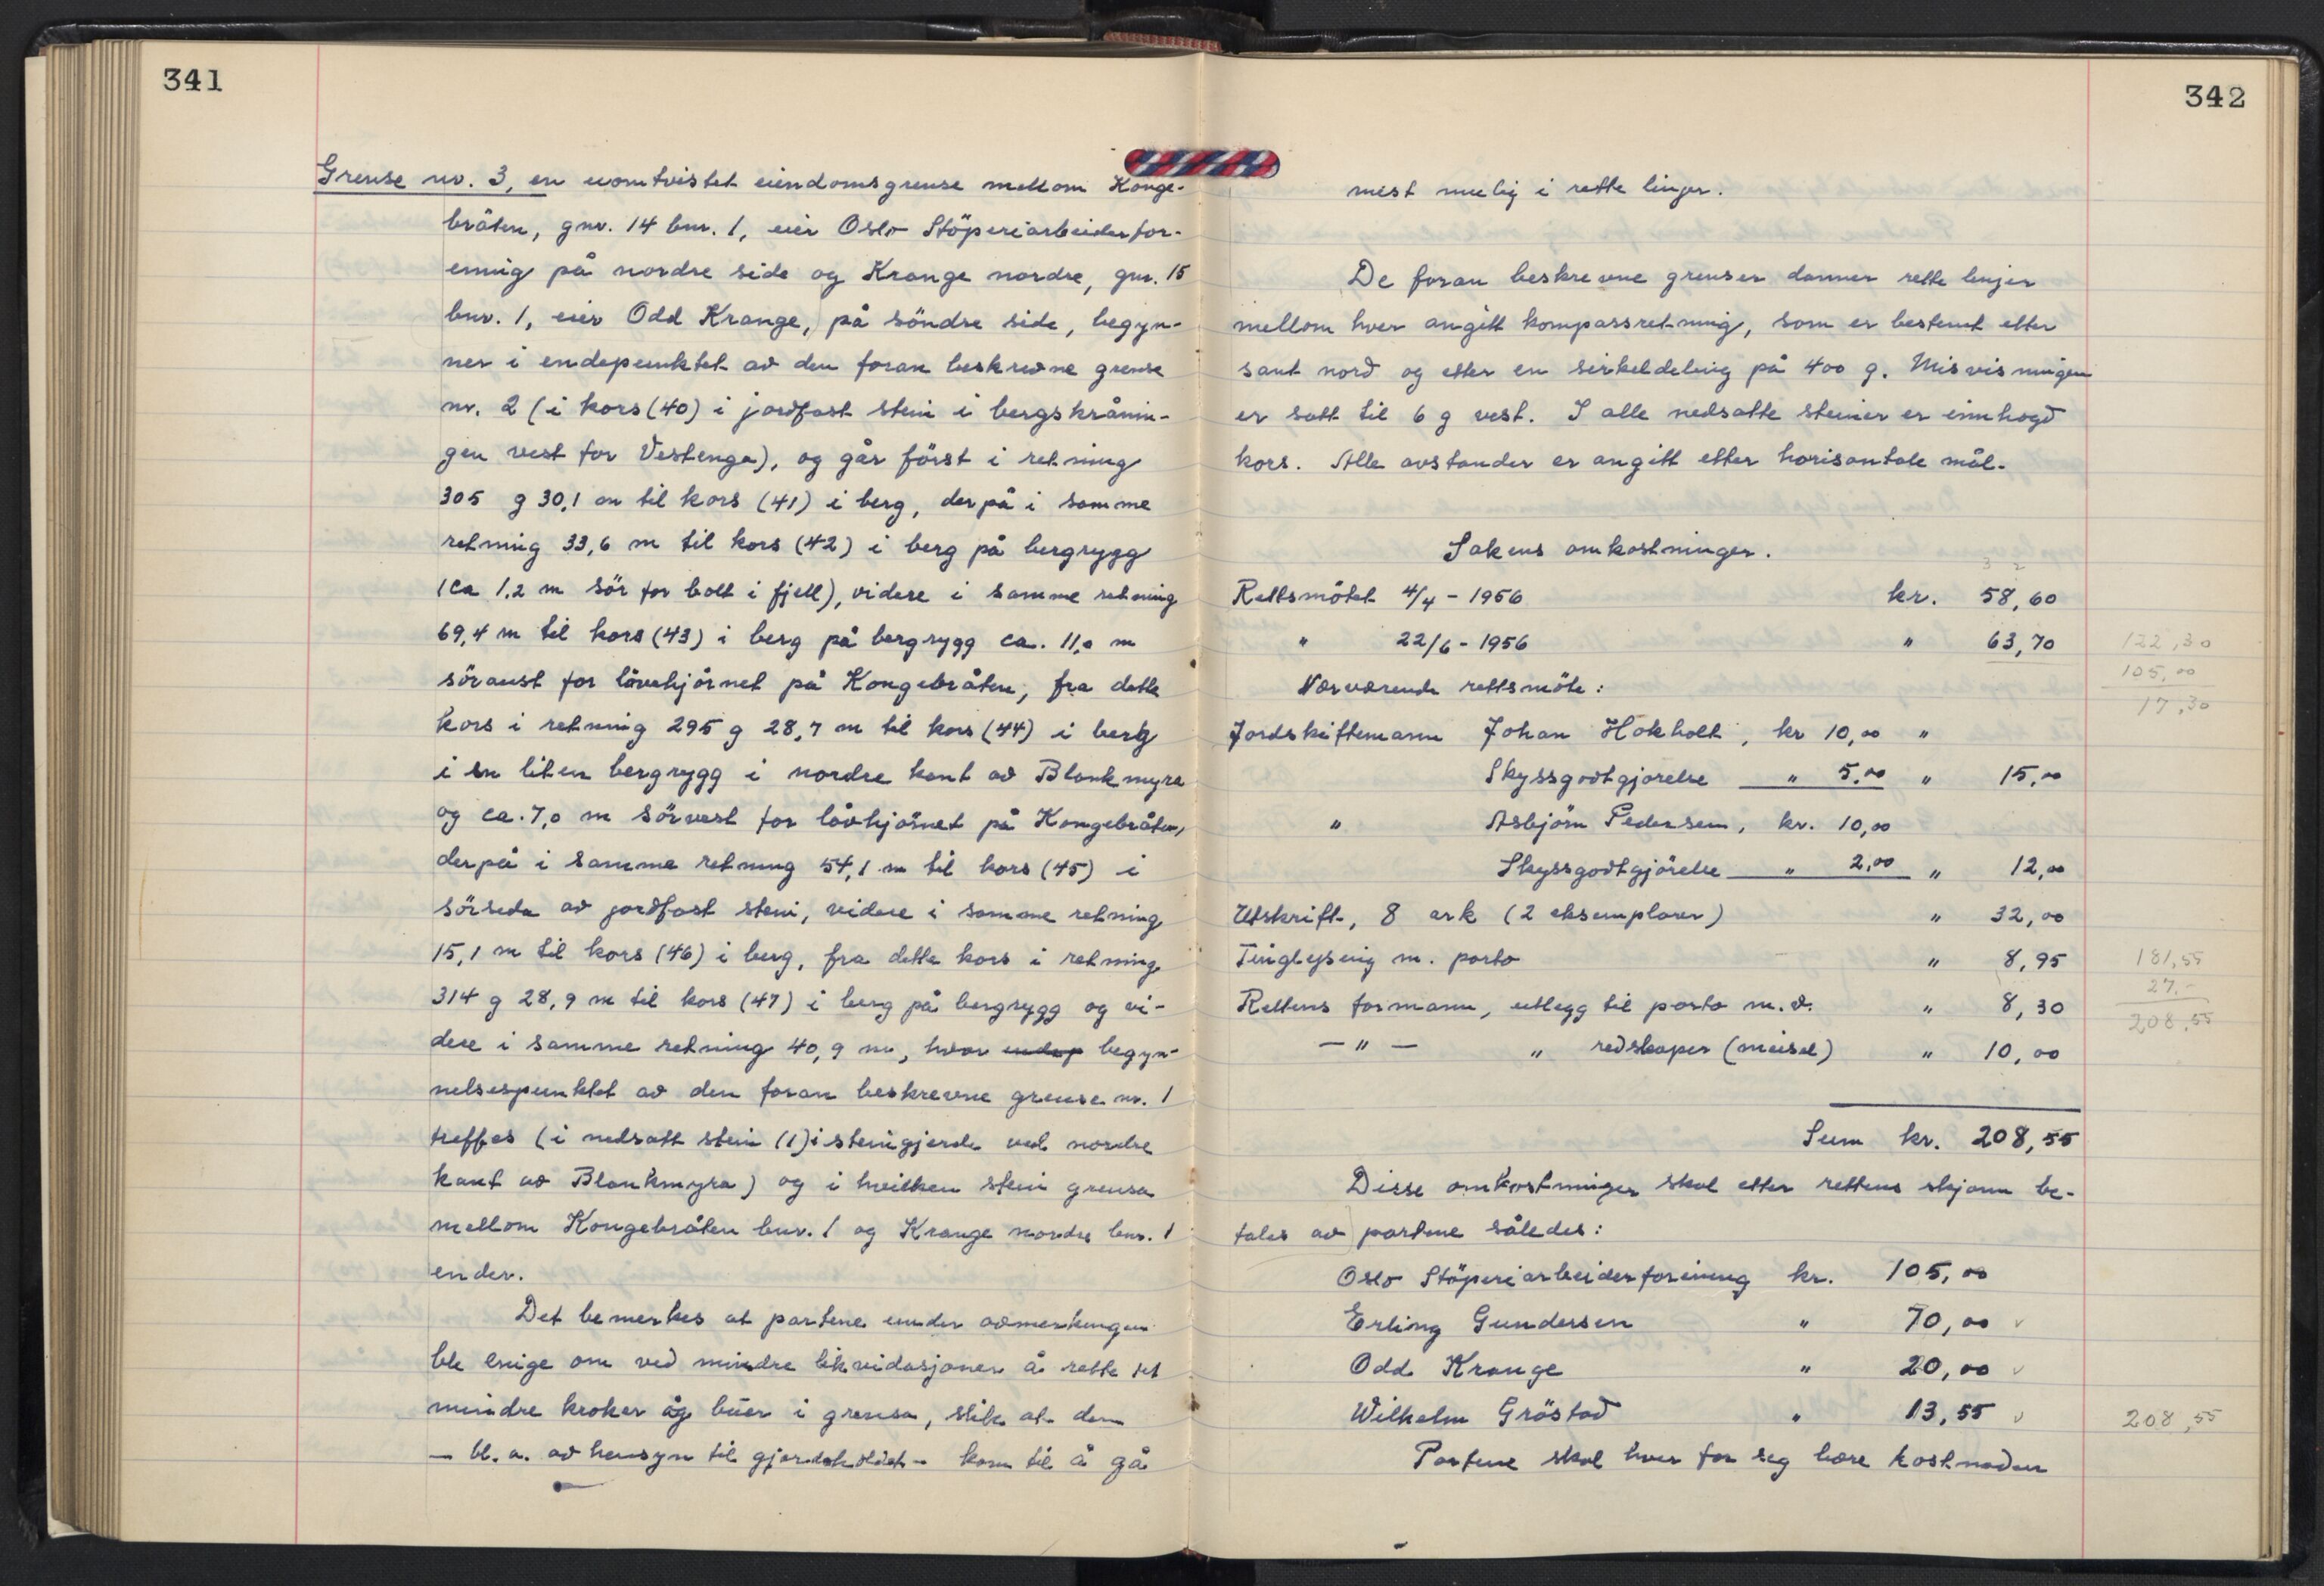 341
Grense nr. 3, en uomtvistet eiendomsgrense mellom Konge-
bråten, gnr. 14 bnr. 1, eier Oslo Stöperiarbeiderfor-
ening på nordre side og Krange nordre, gnr. 15
bnr. 1, eier Odd Krange, på söndre side, begyn-
ner i endepunktet av den foran beskrevne grense
nr. 2 (i kors (40) i jordfast stein i bergskrånin-
gen vest for Vestenga), og går först i retning
305 g 30,1 m til kors (41) i berg, derpå i samme
retning 33,6 m til kors (42) i berg på bergrygg
(ca 1,2 m sör for bolt i fjell), videre i samme retning
69,4 m til kors (43) i berg på bergrygg ca. 11,0 m
söraust for lövehjörnet på Kongebråten, fra dette
kors i retning 295 g 28,7 m til kors (44) i berg
i en liten bergrygg i nordre kant av Blankmyra
og ca. 7,0 m sörvest for låvhjörnet på Kongebråten,
derpå i samme retning 54,1 m til kors (45) i
sörsida av jordfast stein, videre i samme retning
15,1 m til kors (46) i berg, fra dette kors i retning
314 g 28,9 m til kors (47) i berg på bergrygg og vi-
dere i samme retning 40,9 m, hvor endep begyn-
nelsespunktet av den foran beskrevne grense nr. 1
treffes (i nedsatt stein (1) i steingjerde ved nordre
kant av Blankmyra) og i hvilken stein grensa
mellom Kongebråten bnr. 1 og Krange nordre bnr. 1
ender.
Det bemerkes at partene under avmerkingen
ble enige om ved mindre likvidasjoner å rette ut
mindre kroker og buer i grensa, slik at den
- bl. a. av hensyn til gjerdeholdet - kom til å gå
342
mest mulig i rette linjer.
De foran beskrevne grenser danner rette linjer
mellom hver angitt kompassretning, som er bestemt etter
sant nord og etter en sirkeldeling på 400 g. Misvisningen
er satt til 6 g vest. I alle nedsatte steiner er innhogd
kors. Alle avstander er angitt etter horisontale mål.
Sakens omkostninger.
3 2
Rettsmötet 4/4 - 1956 kr. 58,60
" 22/6 - 1956 " 63,70 122,30
105,00
Nærværende rettsmöte: 17,30
Jordskiftemann Johan Hokholt, kr 10,00 "
Skyssgodtgjörelse " 5,00 " 15,00
" Asbjörn Pedersen, kr. 10,00
Skyssgodtgjörelse " 2,00 " 12,00
Utskrift, 8 ark (2 eksemplarer) " 32,00
Tinglysing m. porto " 8,95 181,55
27,-
Rettens formann, utlegg til porto m.v. " 8,30 208,55
- " - " redskaper (meisel) " 10,00
Sum kr. 208,55
Disse omkostninger skal etter rettens skjønn be-
tales av partene således:
Oslo Stöperiarbeiderforening kr. 105,00
Erling Gundersen " 70,00 v
Odd Krange " 20,00 v
Wilhelm Gröstad " 13,55 v 208,55
Partene skal hver for seg bære kostnaden